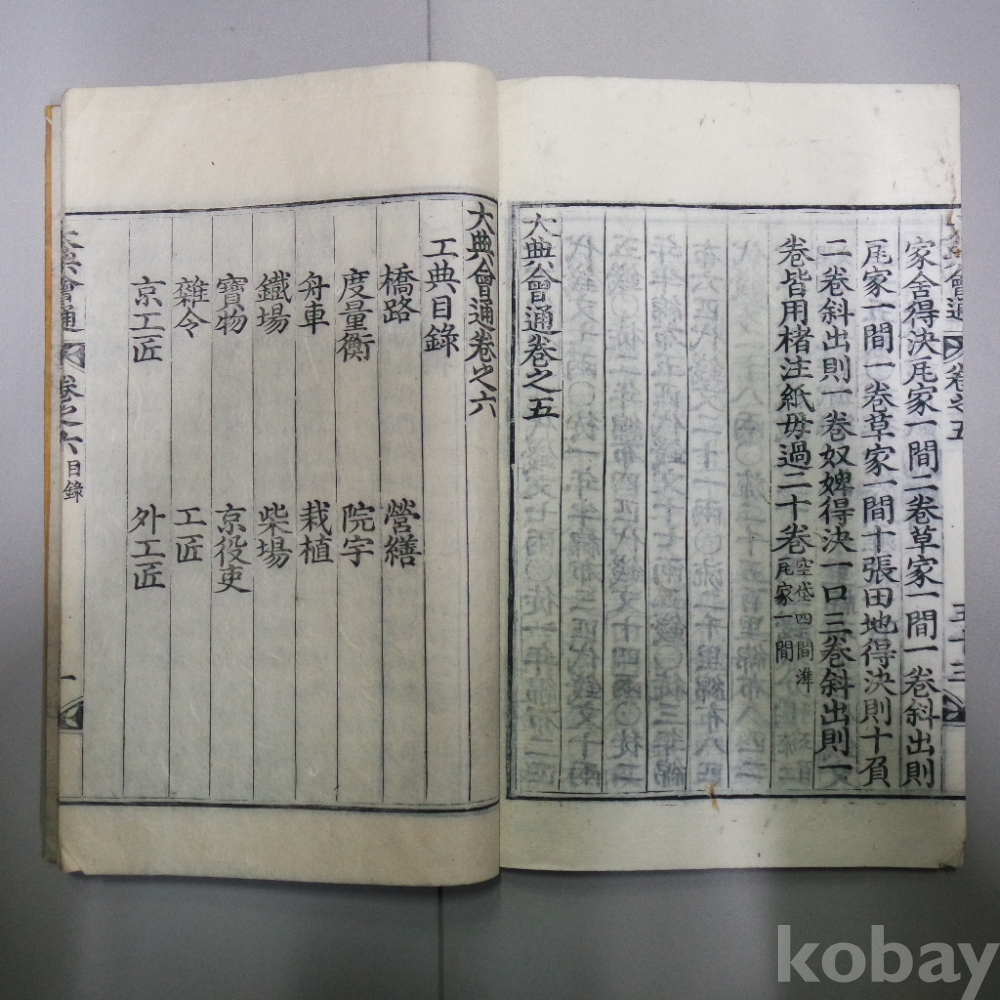 家舍得決瓦家一間二卷草家一間一卷斜出則
瓦家一間一卷草家一間十張田地得決則十負
二卷斜出則一卷奴婢得決一口三卷斜出則一
卷皆用楮注紙毋過二十卷空垈四間準
瓦家一間
大典會通卷之五
大典會通卷之六
工典目錄
橋路 營繕
度量衡 院宇
舟車 栽植
鐵場 柴場
寶物 京役吏
雜令 工匠
京工匠 外工匠
大典會通 卷之六 目錄 一
kobay